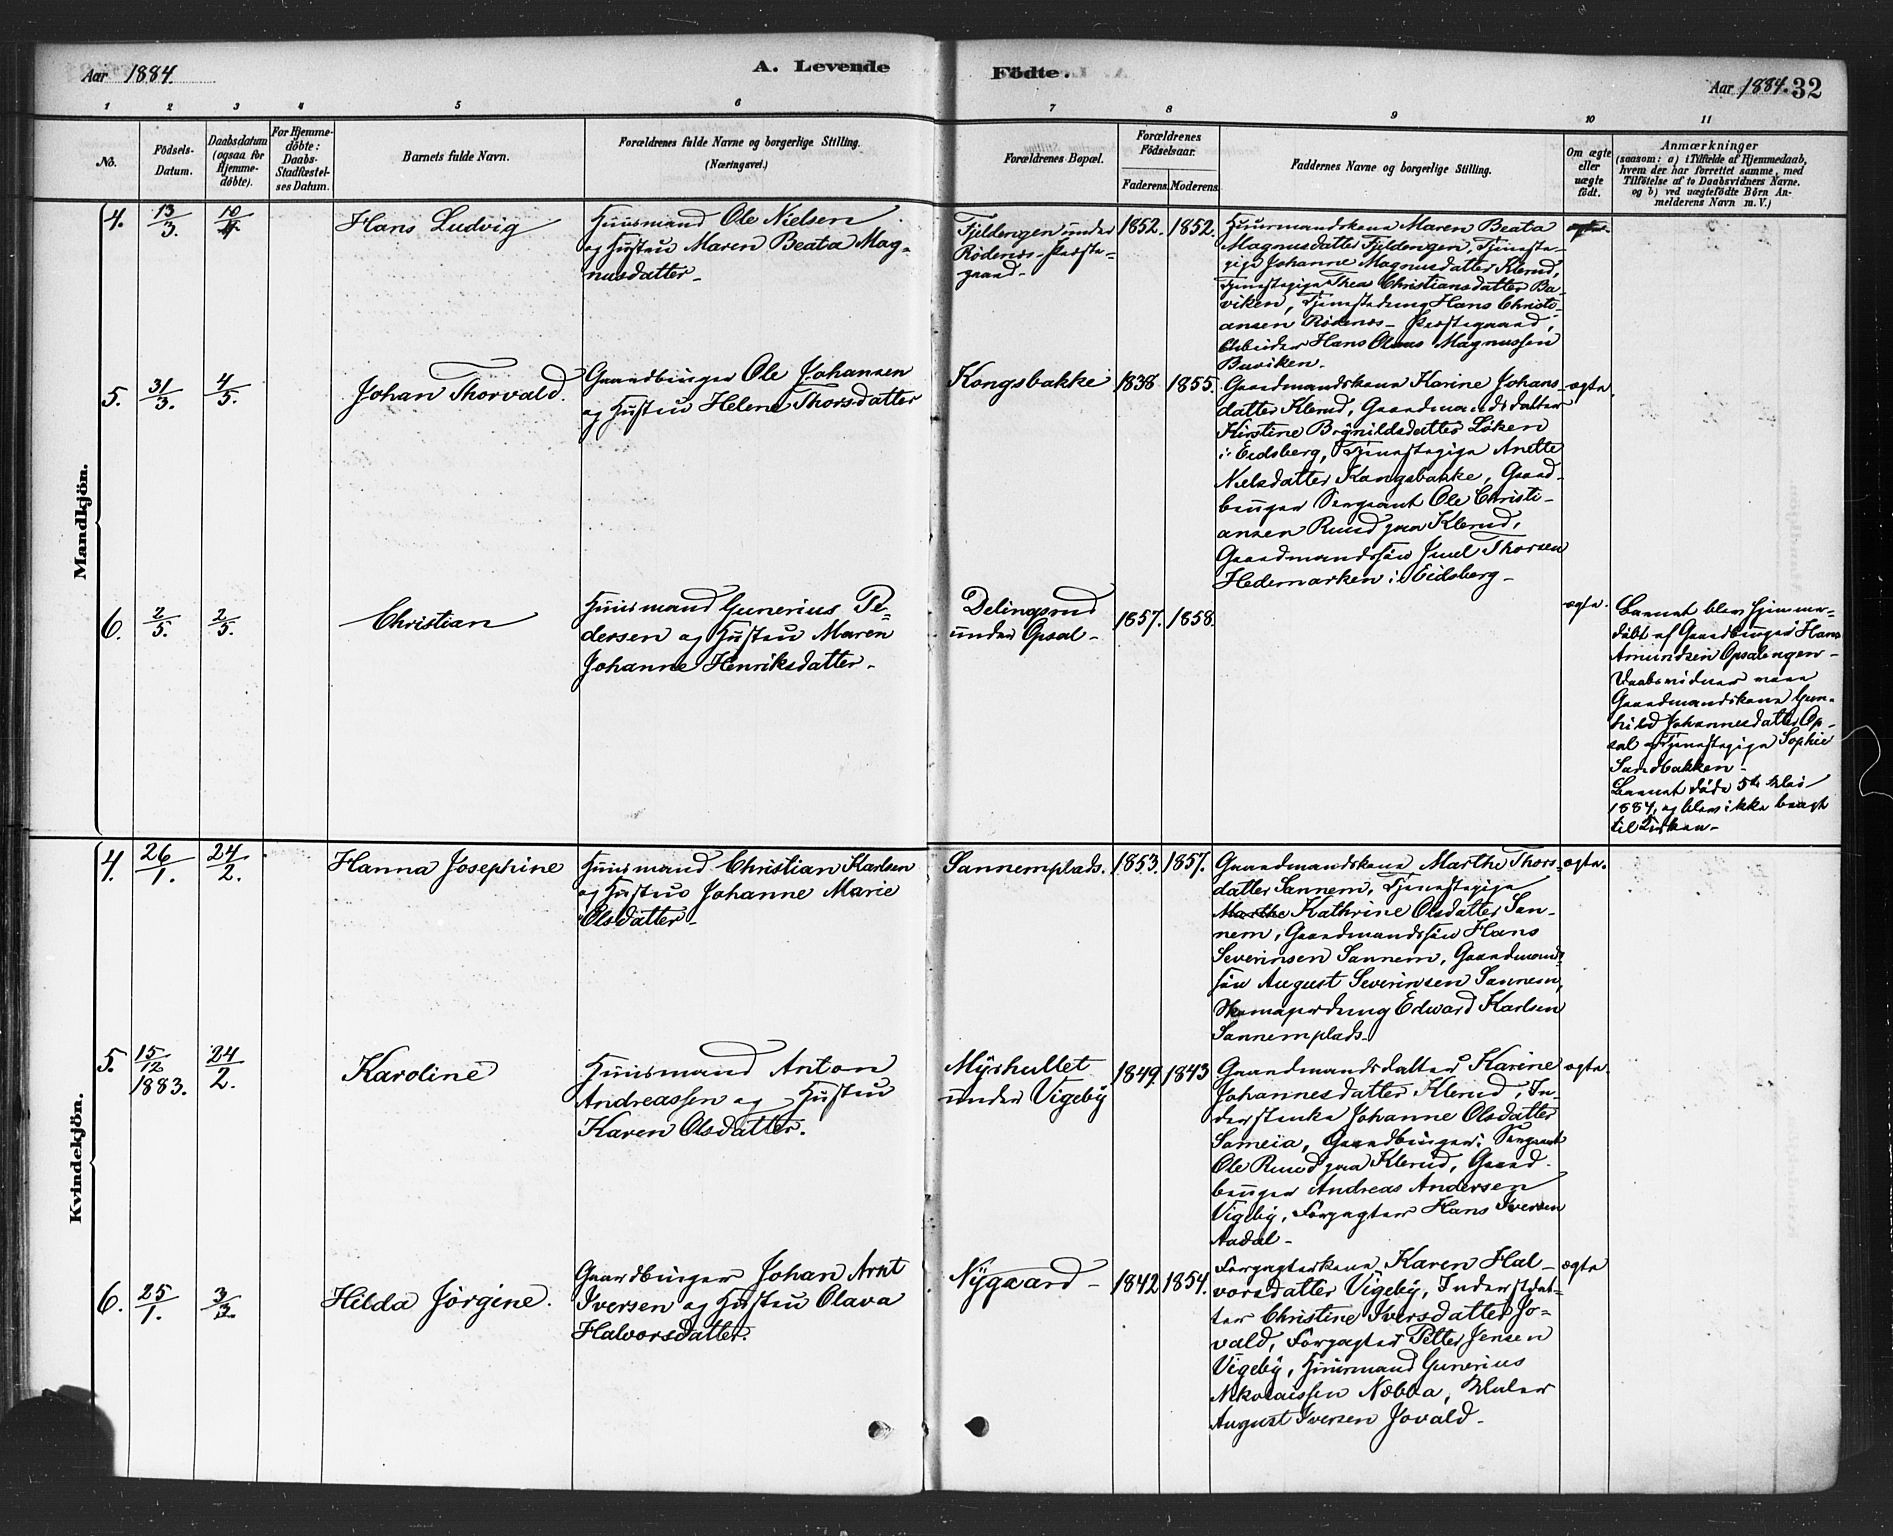 Aar 1884.
A. Levende
Födte.
Aar 1884. 32
1 2 3 4 5 6 7 8 9 10 11
No.
Födsels-
Datum.
Daabsdatum
(ogsaa for
Hjemme-
döbte).
For Hjemme-
döbte:
Daabs-
Stadfæstel-
ses Datum.
Barnets fulde Navn.
Forældrenes fulde Navne og borgerlige Stilling.
(Næringsvei.)
Forældrenes Bopæl.
Forældrenes
Födselsaar.
Faderens. Moderens.
Faddernes Navne og borgerlige Stilling.
Om ægte
eller
uægte
födt.
Anmærkninger
(saasom: a) i Tilfælde af Hjemmedaab,
hvem der har forrettet samme, med
Tilföielse af to Daabsvidners Navne.
og b) ved uægtefödte Börn An-
melderens Navn m. V.)
Mandkjön.
4. 13/3. 10/4
Hans Ludvig
Huusmand Ole Nielsen
og Hustru Maren Beata Mag-
nusdatter
Fjeldengen under
Rödenes-Præste-
gaard
1852. 1852.
Huusmandskone Maren Beata
Magnusdatter Fjeldengen, Tjeneste-
pige Johanne Magnusdatter Klerud,
Tjenestepige Thea Christiansdatter Ba-
viken, Tjenestedreng Hans Christi-
ansen Rödenes-Præstegaard,
Arbeider Hans Olaus Magnussen
Baviken.
ægte
5. 31/3. 4/5.
Johan Thorvald.
Gaardbruger Ole Johansen
og Hustru Helene Thorsdatter
Kongsbakke
1838 1855.
Gaardmandskone Karine Johans-
datter Klerud, Gaardmandsdatter
Kirstine Brynildsdatter Löken
i Eidsberg, Tjenestepige Anette
Nielsdatter Kongsbakke, Gaard-
bruger Sergeant Ole Christi-
ansen Ruud paa Klerud,
Gaardmandssön Juul Thorsen
Hedemarken i Eidsberg
ægte.
6. 2/5. 2/5.
Christian
Huusmand Gunerius Pe-
dersen og Hustru Maren
Johanne Henriksdatter
Delingsrud
under Opsal
1857. 1858.
ægte.
Barnet blev hjemme-
döbt af Gaardbruger Hans
Amundsen Opsalengen
Daabsvidner vare
Gaardmandskone Gun-
hild Johannesdatter Op-
sal og Tjenestepige Sophie
Sandbakken
Barnet döde 5te Mai
1884, og blev ikke bragt
til Kirken
Kvindekjön.
4. 26/1. 24/2.
Hanna Josephine
Huusmand Christian Karlsen
og Hustru Johanne Marie
Olsdatter
Sannemplads.
1853. 1857.
Gaardmandskone Marthe Thors-
datter Sannem, Tjenestepige
Marthe Kathrine Olsdatter San-
nem, Gaardmandssön Hans
Severinsen Sannem, Gaardmands-
sön August Severinsen Sannem,
Edward Karlsen
Sannemplads
ægte.
5. 15/12 1883. 24/2.
Karoline
Huusmand Anton
Andreassen og Hustru
Karen Olsdatter.
Myrhullet
under Vigeby
1849. 1843
Gaardmandsdatter Karine
Johannesdatter Klerud, In-
derstenke Johanne Olsdatter
Sameia, Gaardbruger, Sergeant
Ole Ruud paa Klerud, Gaard-
bruger Andreas Andersen
Vigeby, Forpagter Hans Iversen
Aadal
ægte.
6. 25/1. 3/3.
Hilda Jörgine.
Gaardbruger Johan Arnt
Iversen og Hustru Olava
Halvorsdatter.
Nygaard
1842 1854.
Forpagterkone Karen Hal-
vorsdatter Vigeby, Inderstdat-
ter Christine Iversdatter Jo-
vald, Forpagter Petter Jensen
Vigeby, Huusmand Gunerius
Nikolaissen Næbba, Maler
August Iversen Jovald
ægte